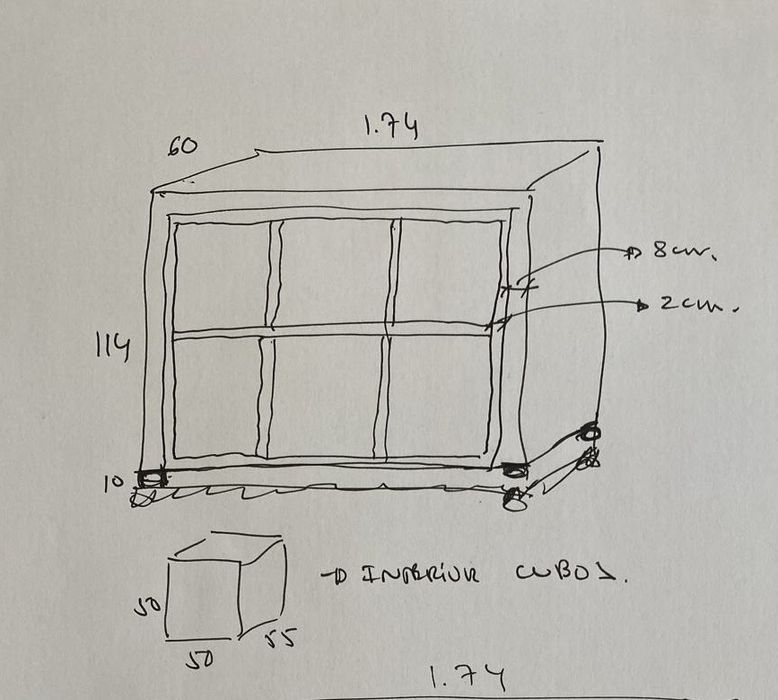 60
1.74
8cm.
2cm.
114
10
→ INTERIOR CUBOS.
50
55
50
1.74